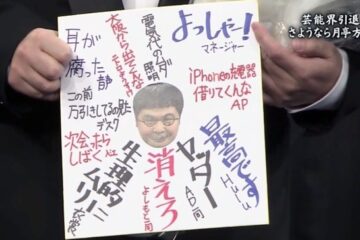 芸能界引退
さようなら月亭方
よっしゃー！
マネージャー
iPhoneの充電器
借りてくんな
AP
最高です
Hulu
ヤッター
AD一同
消えろ
よしもと一同
生理的
ムリ！
衣裳
電気代のムダ
照明
大阪から出てくんな
耳が
腐った
音声部
この前
万引きしてるの見た
デスク
次会ったら
しばく